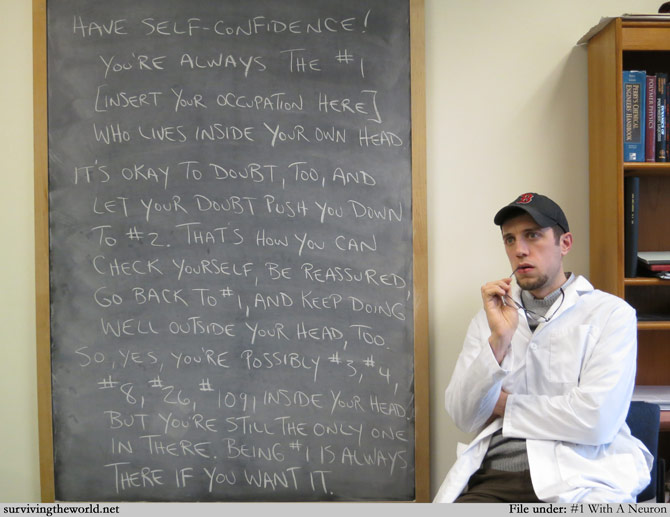 HAVE SELF-CONFIDENCE!
YOU'RE ALWAYS THE #1
[INSERT YOUR OCCUPATION HERE]
WHO LIVES INSIDE YOUR OWN HEAD
IT'S OKAY TO DOUBT, TOO, AND
LET YOUR DOUBT PUSH YOU DOWN
TO #2. THAT'S HOW YOU CAN
CHECK YOURSELF, BE REASSURED,
GO BACK TO #1, AND KEEP DOING
WELL OUTSIDE YOUR HEAD, TOO.
SO, YES, YOU'RE POSSIBLY #3, #4,
#8, #26, #1091 INSIDE YOUR HEAD.
BUT YOU'RE STILL THE ONLY ONE
IN THERE. BEING #1 IS ALWAYS
THERE IF YOU WANT IT.
PERRY'S CHEMICAL ENGINEERS' HANDBOOK
POLYMER PHYSICS
survivingtheworld.net
File under: #1 With A Neuron